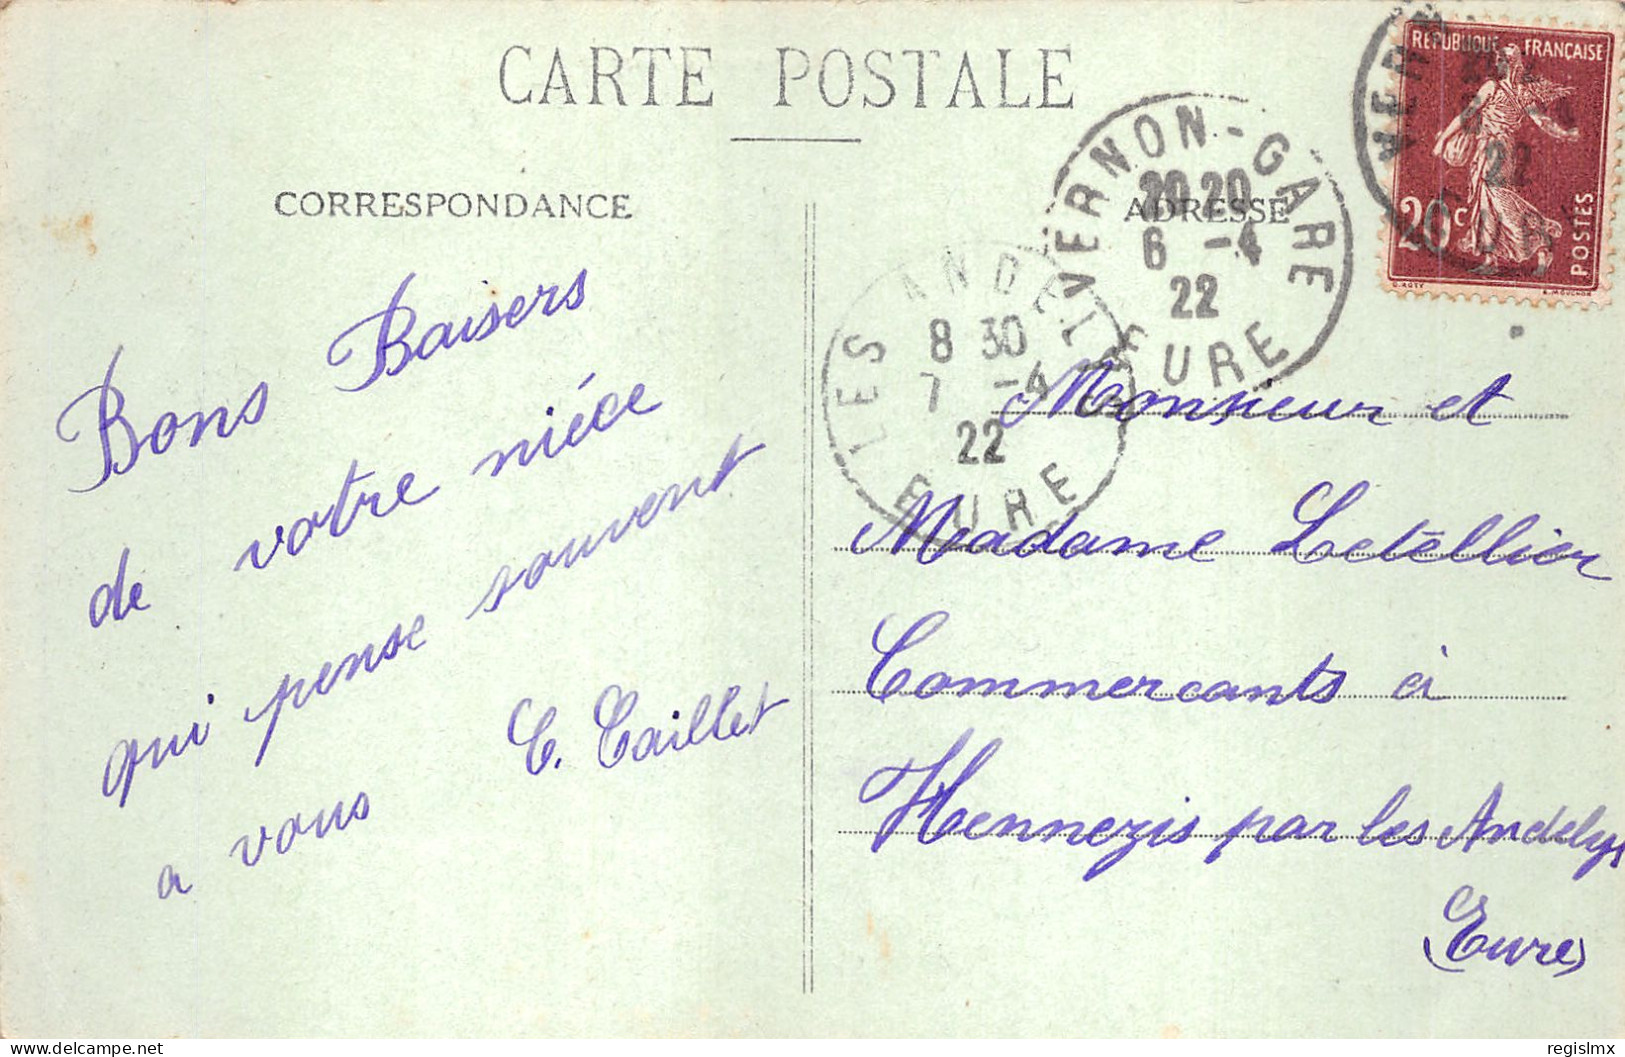 CARTE POSTALE
CORRESPONDANCE
ADRESSE
REPUBLIQUE FRANÇAISE
20c
POSTES
VERNON-GARE
20 20
6 -4
22
EURE
LES ANDELYS
8 30
7 -4
22
EURE
Bons Baisers
de votre niéce
qui pense souvent
a vous
C. Caillet
Monsieur et
Madame Letellier
Commercants à
Hennezis par les Andelys
(Eure)
delcampe.net
regislmx